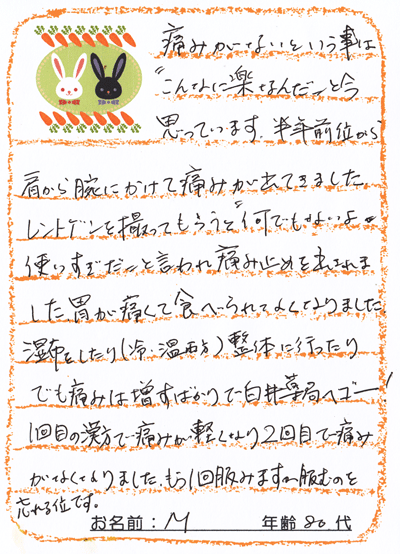 痛みがないという事は
"こんなに楽なんだ"と今
思っています。半年前位から
肩から腕にかけて痛みが出てきました
レントゲンを撮ってもらうと"何でもないよ"
使いすぎだ"と言われ痛み止めを出されま
した。胃が痛くて食べられなくなりました
湿布をしたり(冷・温両方)整体に行ったり
でも痛みは増すばかりで臼井薬局へゴー!
1回目の漢方で痛みが軽くなり2回目で痛み
がなくなりました。もう1回飲みますが飲むのを
忘れる位です。
お名前:M 年齢80代